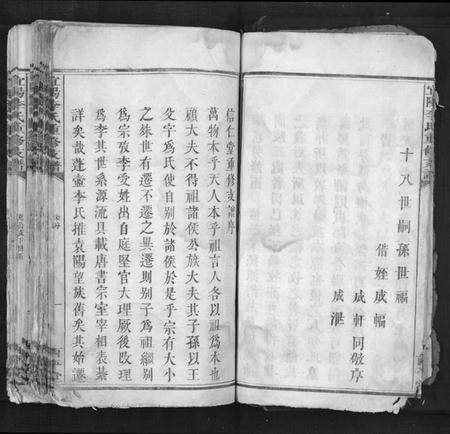 十八世嗣孫世福
偕姪成幅
成軒同敬序
成泄
信仁堂重修支譜序
萬物本乎天人本乎祖言人各以祖為本也
顧大夫不得祖諸侯公族大夫其子孫以王
父字為氏使自別於諸侯於是乎宗有大小
之殊世有遷不遷之異遷則別子為祖繼別
為宗攷李受姓出自庭堅官大理厥後改理
為李其世系源流具載唐書宗室宰相表綦
詳矣故蓬壷李氏推袁陽望族舊矣其始遷
宜陽李氏重修支譜